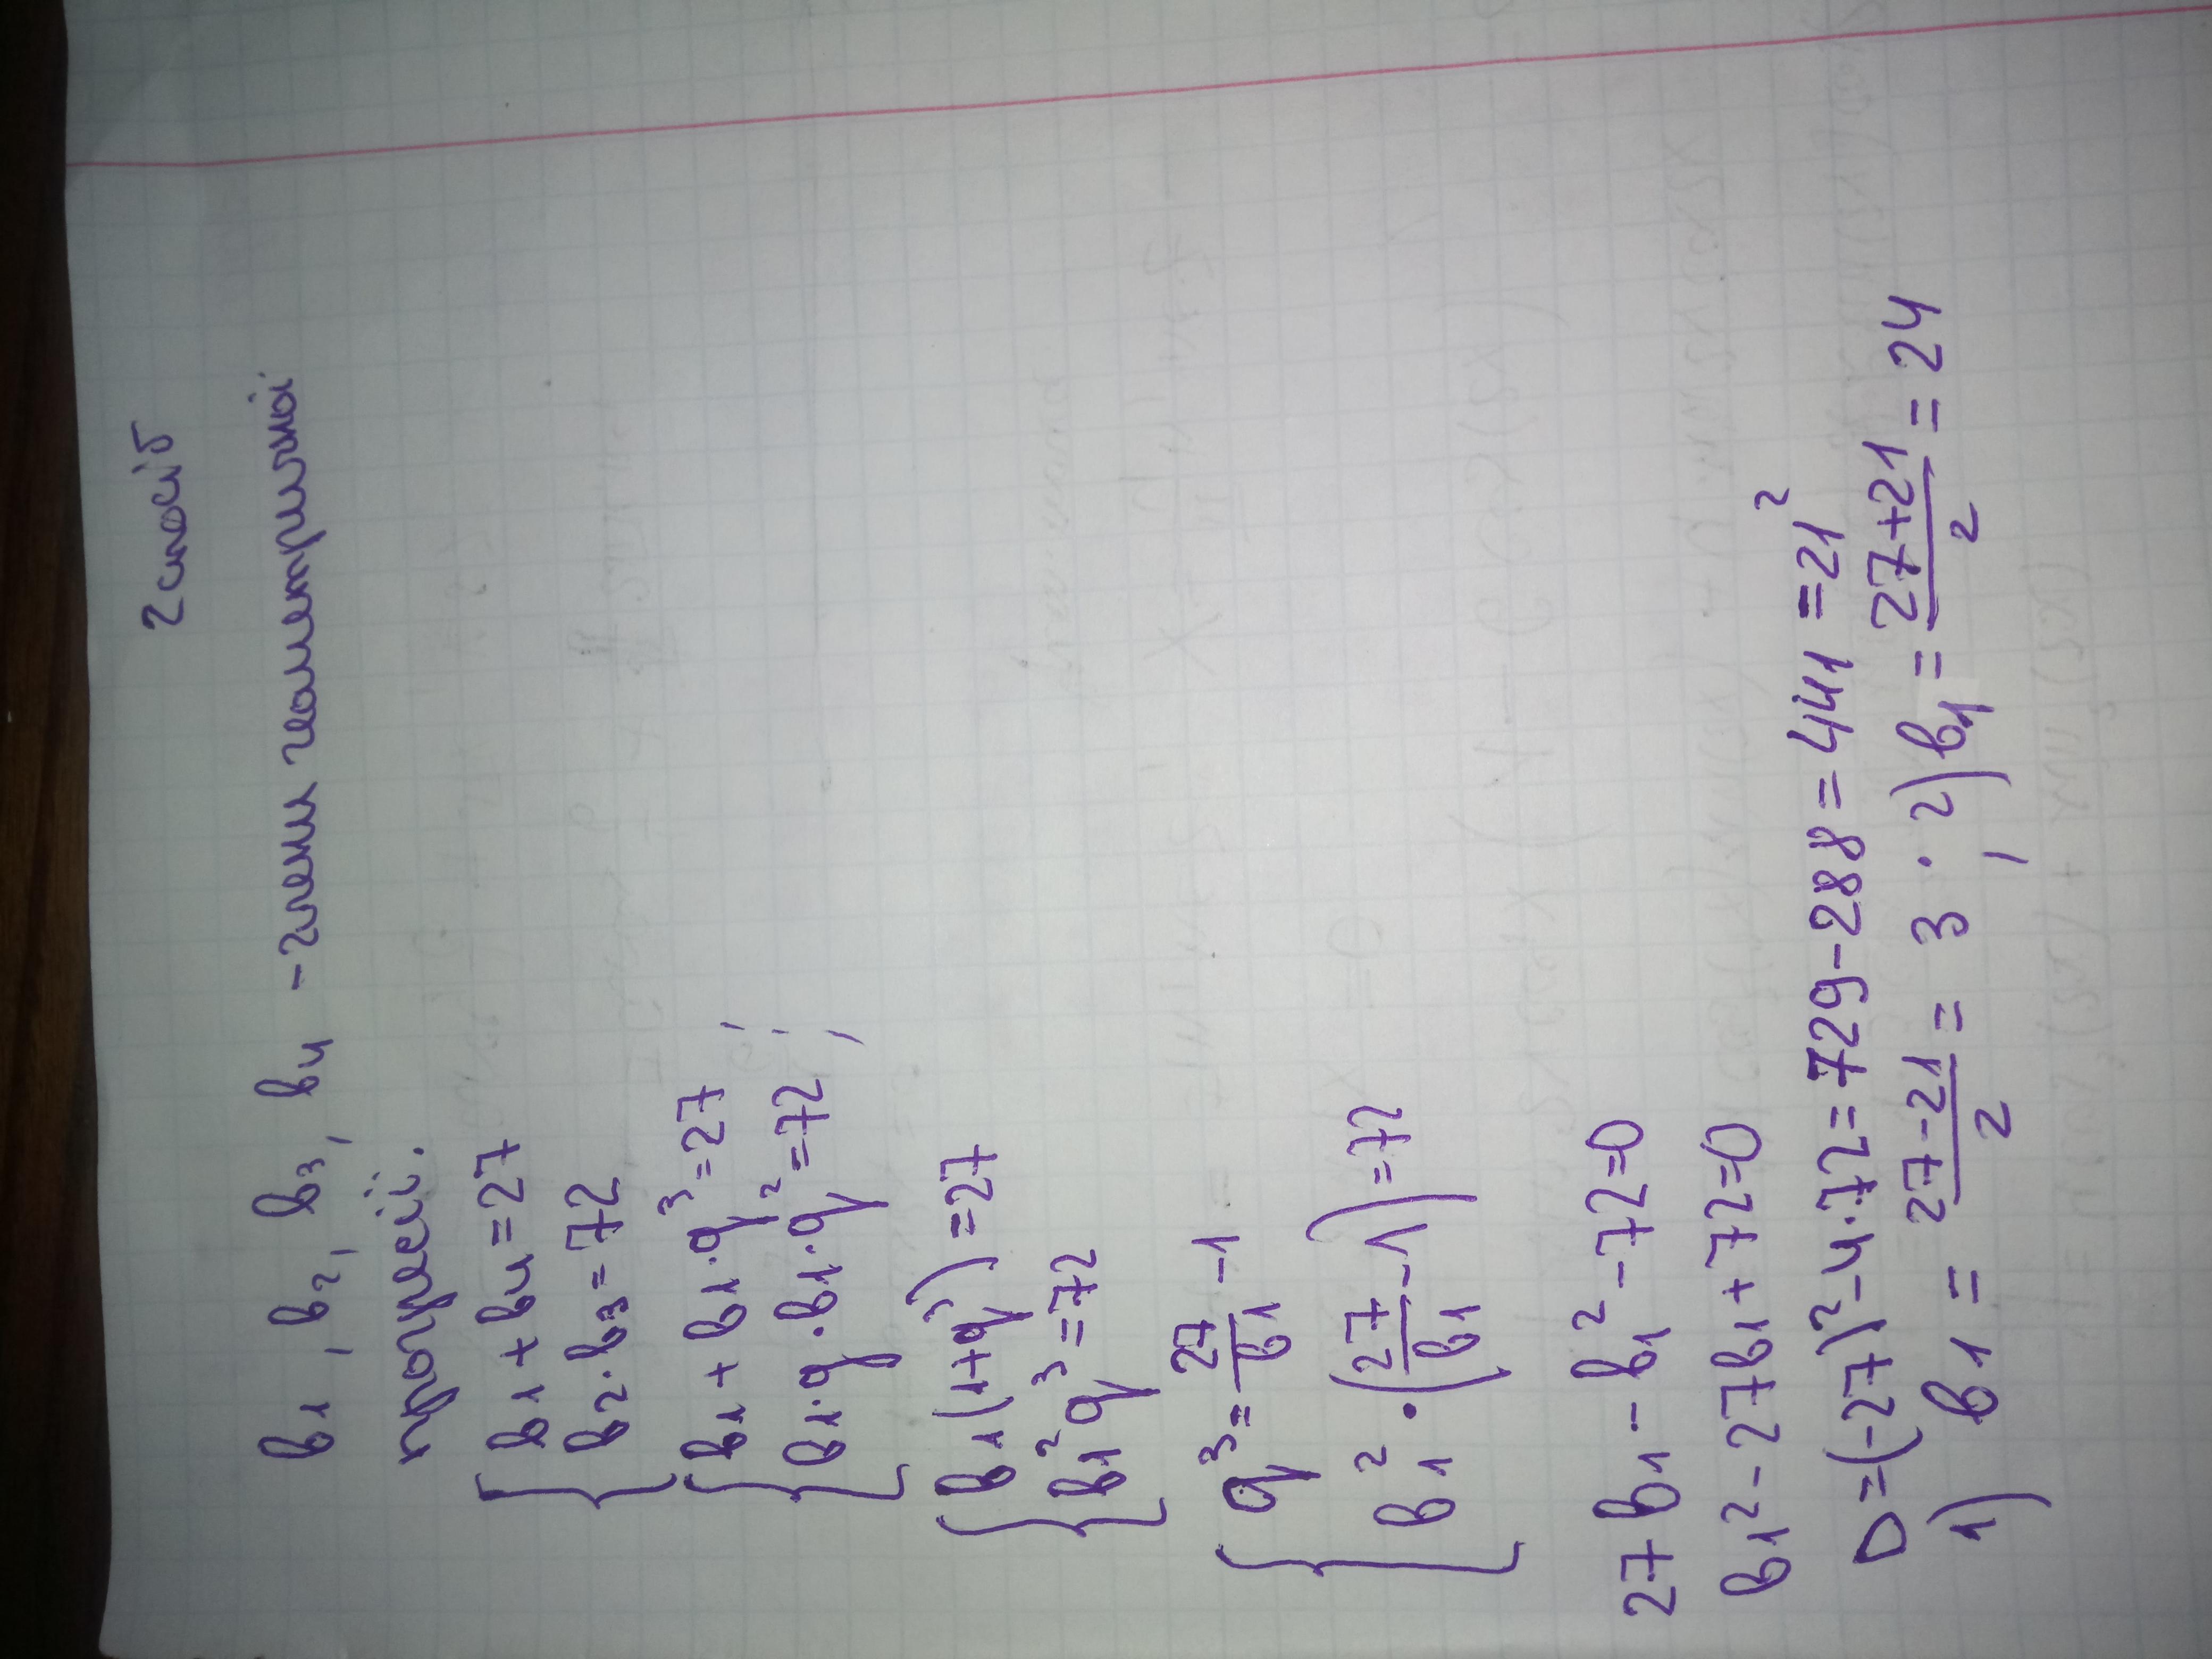 2 спосіб
b₁, b₂, b₃, b₄ - члени геометричної
прогресії.
{ b₁ + b₄ = 27
b₂ · b₃ = 72
{ b₁ + b₁ · q³ = 27 ;
b₁ · q · b₁ · q² = 72 ;
{ b₁(1+q³) = 27
b₁²q³ = 72
{ q³ = 27/b₁ - 1
b₁² · (27/b₁ - 1) = 72
27b₁ - b₁² - 72 = 0
b₁² - 27b₁ + 72 = 0
D = (-27)² - 4·72 = 729 - 288 = 441 = 21²
1) b₁ = (27-21)/2 = 3 ; 2) b₁ = (27+21)/2 = 24